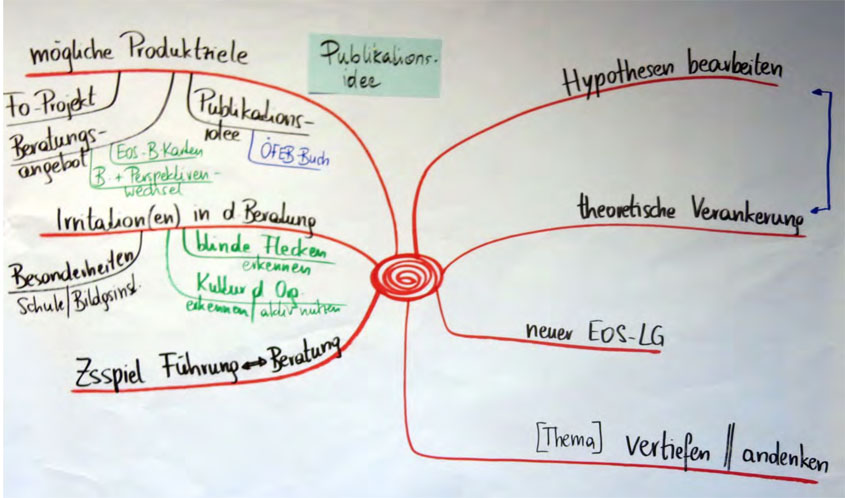 mögliche Produktziele
Fo-Projekt
Beratungs-
angebot
EOS-B Karten
B + Perspektiven-
wechsel
Publikations-
idee
ÖFEB-Buch
Publikations-
idee
Irritation(en) in d. Beratung
Besonderheiten
Schule/Bildgsinst.
blinde Flecken
erkennen
Kultur d Org.
erkennen/aktiv nutzen
Zsspiel Führung ↔ Beratung
Hypothesen bearbeiten
theoretische Verankerung
neuer EOS-LG
[Thema] vertiefen || andenken